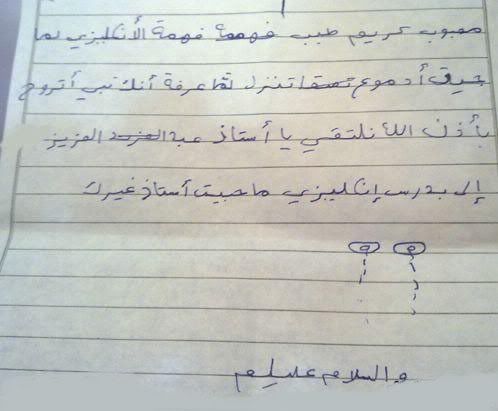 محبوب كريم طيب فهمة الأنكليزي بما
أدموع تنزل لما عرفة أنك تبي أتروح
بأذن الله نلتقي يا أستاذ عبد العزيز
إلي بدرس إنكليزي ما حبيت أستاذ غيرك
والسلام عليكم